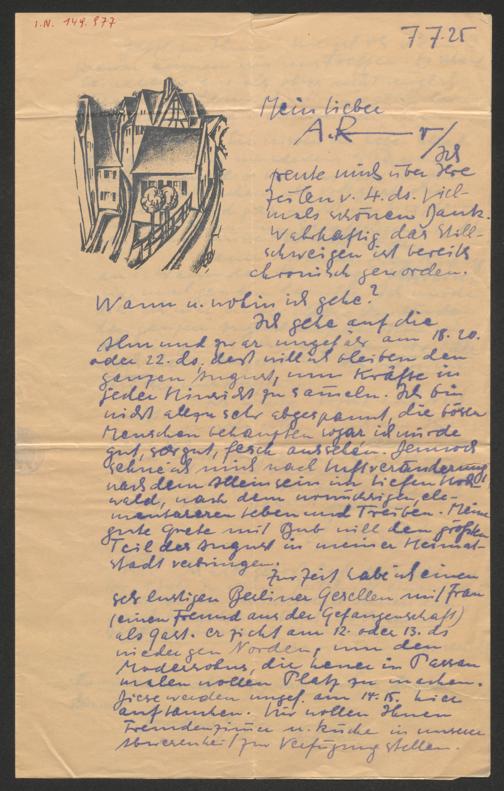 I.N. 149.977
7.7.25
Mein lieber
A. R
Ich
freute mich über Ihre
Zeilen v. 4. ds. Viel-
mals schönen Dank.
Wahrhaftig das Still-
schweigen ist bereits
chronisch geworden.
Wann u. wohin ich gehe?
Ich gehe auf die
Alm und zwar ungefähr am 18. 20.
oder 22. ds. dort will ich bleiben den
ganzen August, um Kräfte in
jeder Hinsicht zu sameln. Ich bin
nicht allzu sehr abgespannt, die bösen
Menschen behaupten sogar ich würde
gut, sehr gut, fesch aussehen. Dennoch
sehne ich mich nach Luftveränderung
nach dem Alleinsein im tiefen Hoch-
wald, nach dem ele-
mentareren Leben und Treiben. Meine
gute Grete mit Bub will den größten
Teil des August in meiner Heimat-
stadt verbringen.
Zur Zeit habe ich einen
sehr lustigen Berliner Gesellen mit Frau
(einen Freund aus der Gefangenschaft)
als Gast. Er zieht am 12. oder 13. ds
wieder gen Norden, um den
Modersohns, die heuer in Passau
malen wollen Platz zu machen.
Diese werden ungef. am 14. 15. hier
auftauchen. Wir wollen Ihnen
Fremdenzimmer u. Küche in unserer
Abwesenheit zur Verfügung stellen.